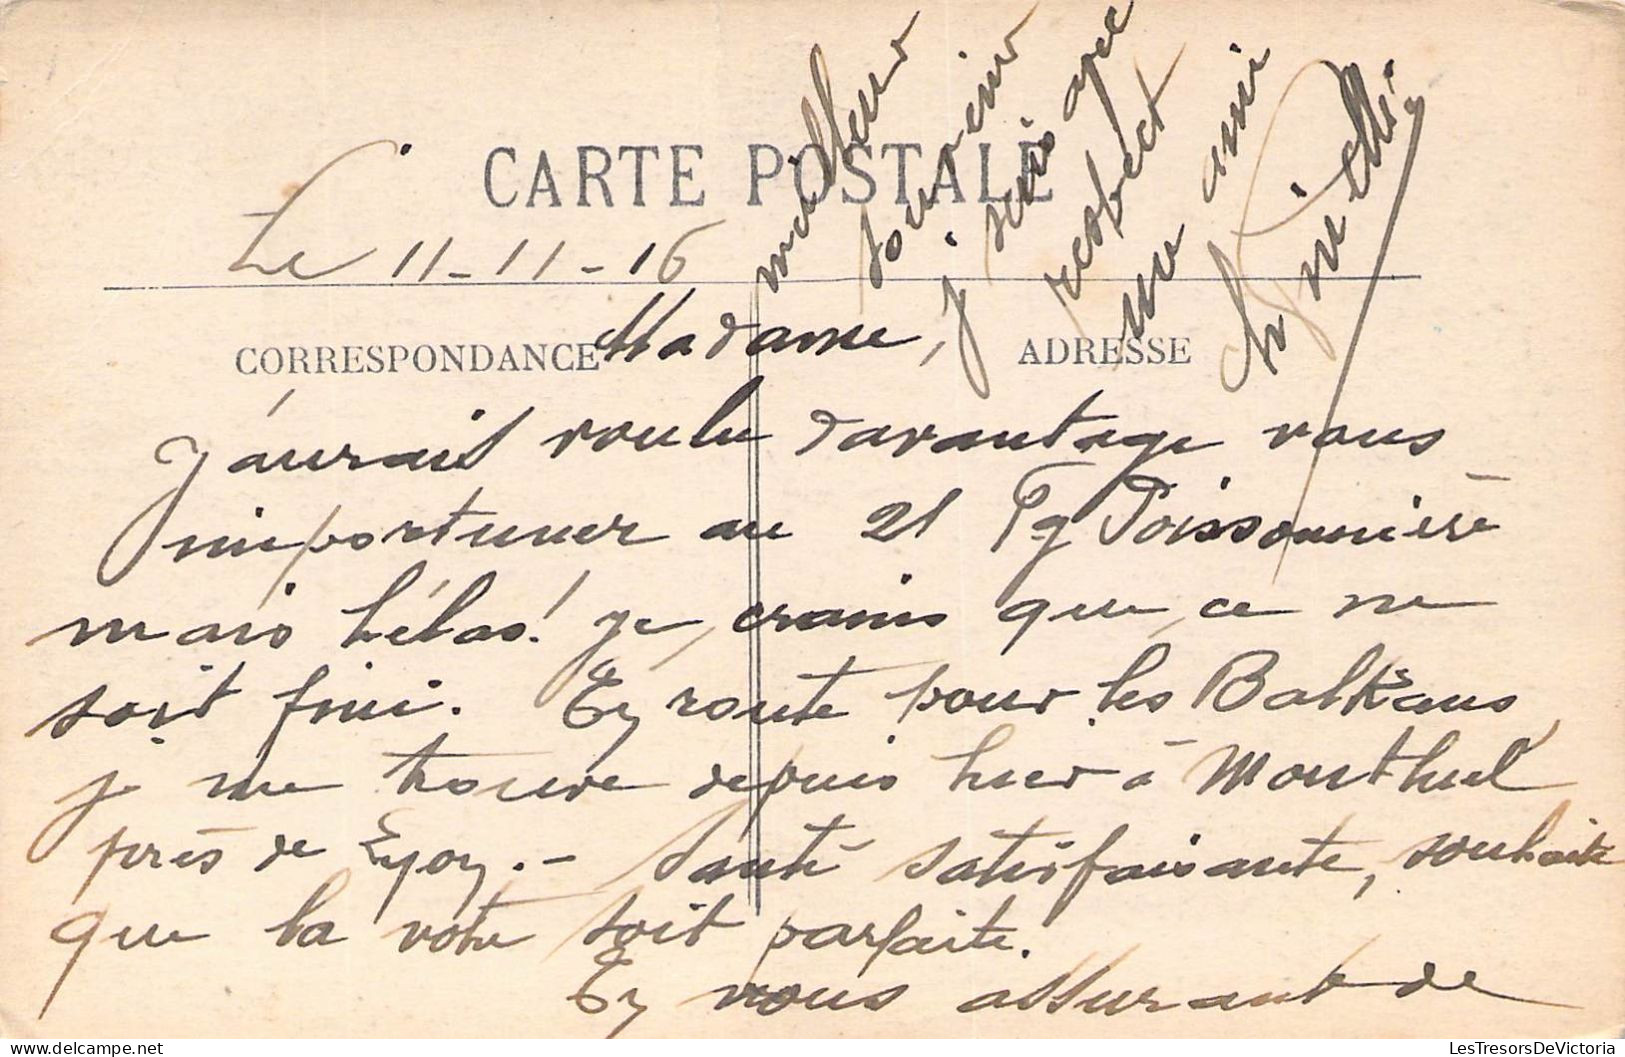 CARTE POSTALE
Le 11-11-16
CORRESPONDANCE
ADRESSE
Madame,
J'aurais voulu davantage vous
importuner au 21 Fg Poissonnière
mais hélas! je crains que ce ne
soit fini. En route pour les Balkans
je me trouve depuis hier à Montluel
près de Lyon. - Santé satisfaisante, souhaite
que la votre soit parfaite.
En vous assurant de
meilleur
souvenir
je suis avec
respect
un ami
LesTresorsDeVictoria.com